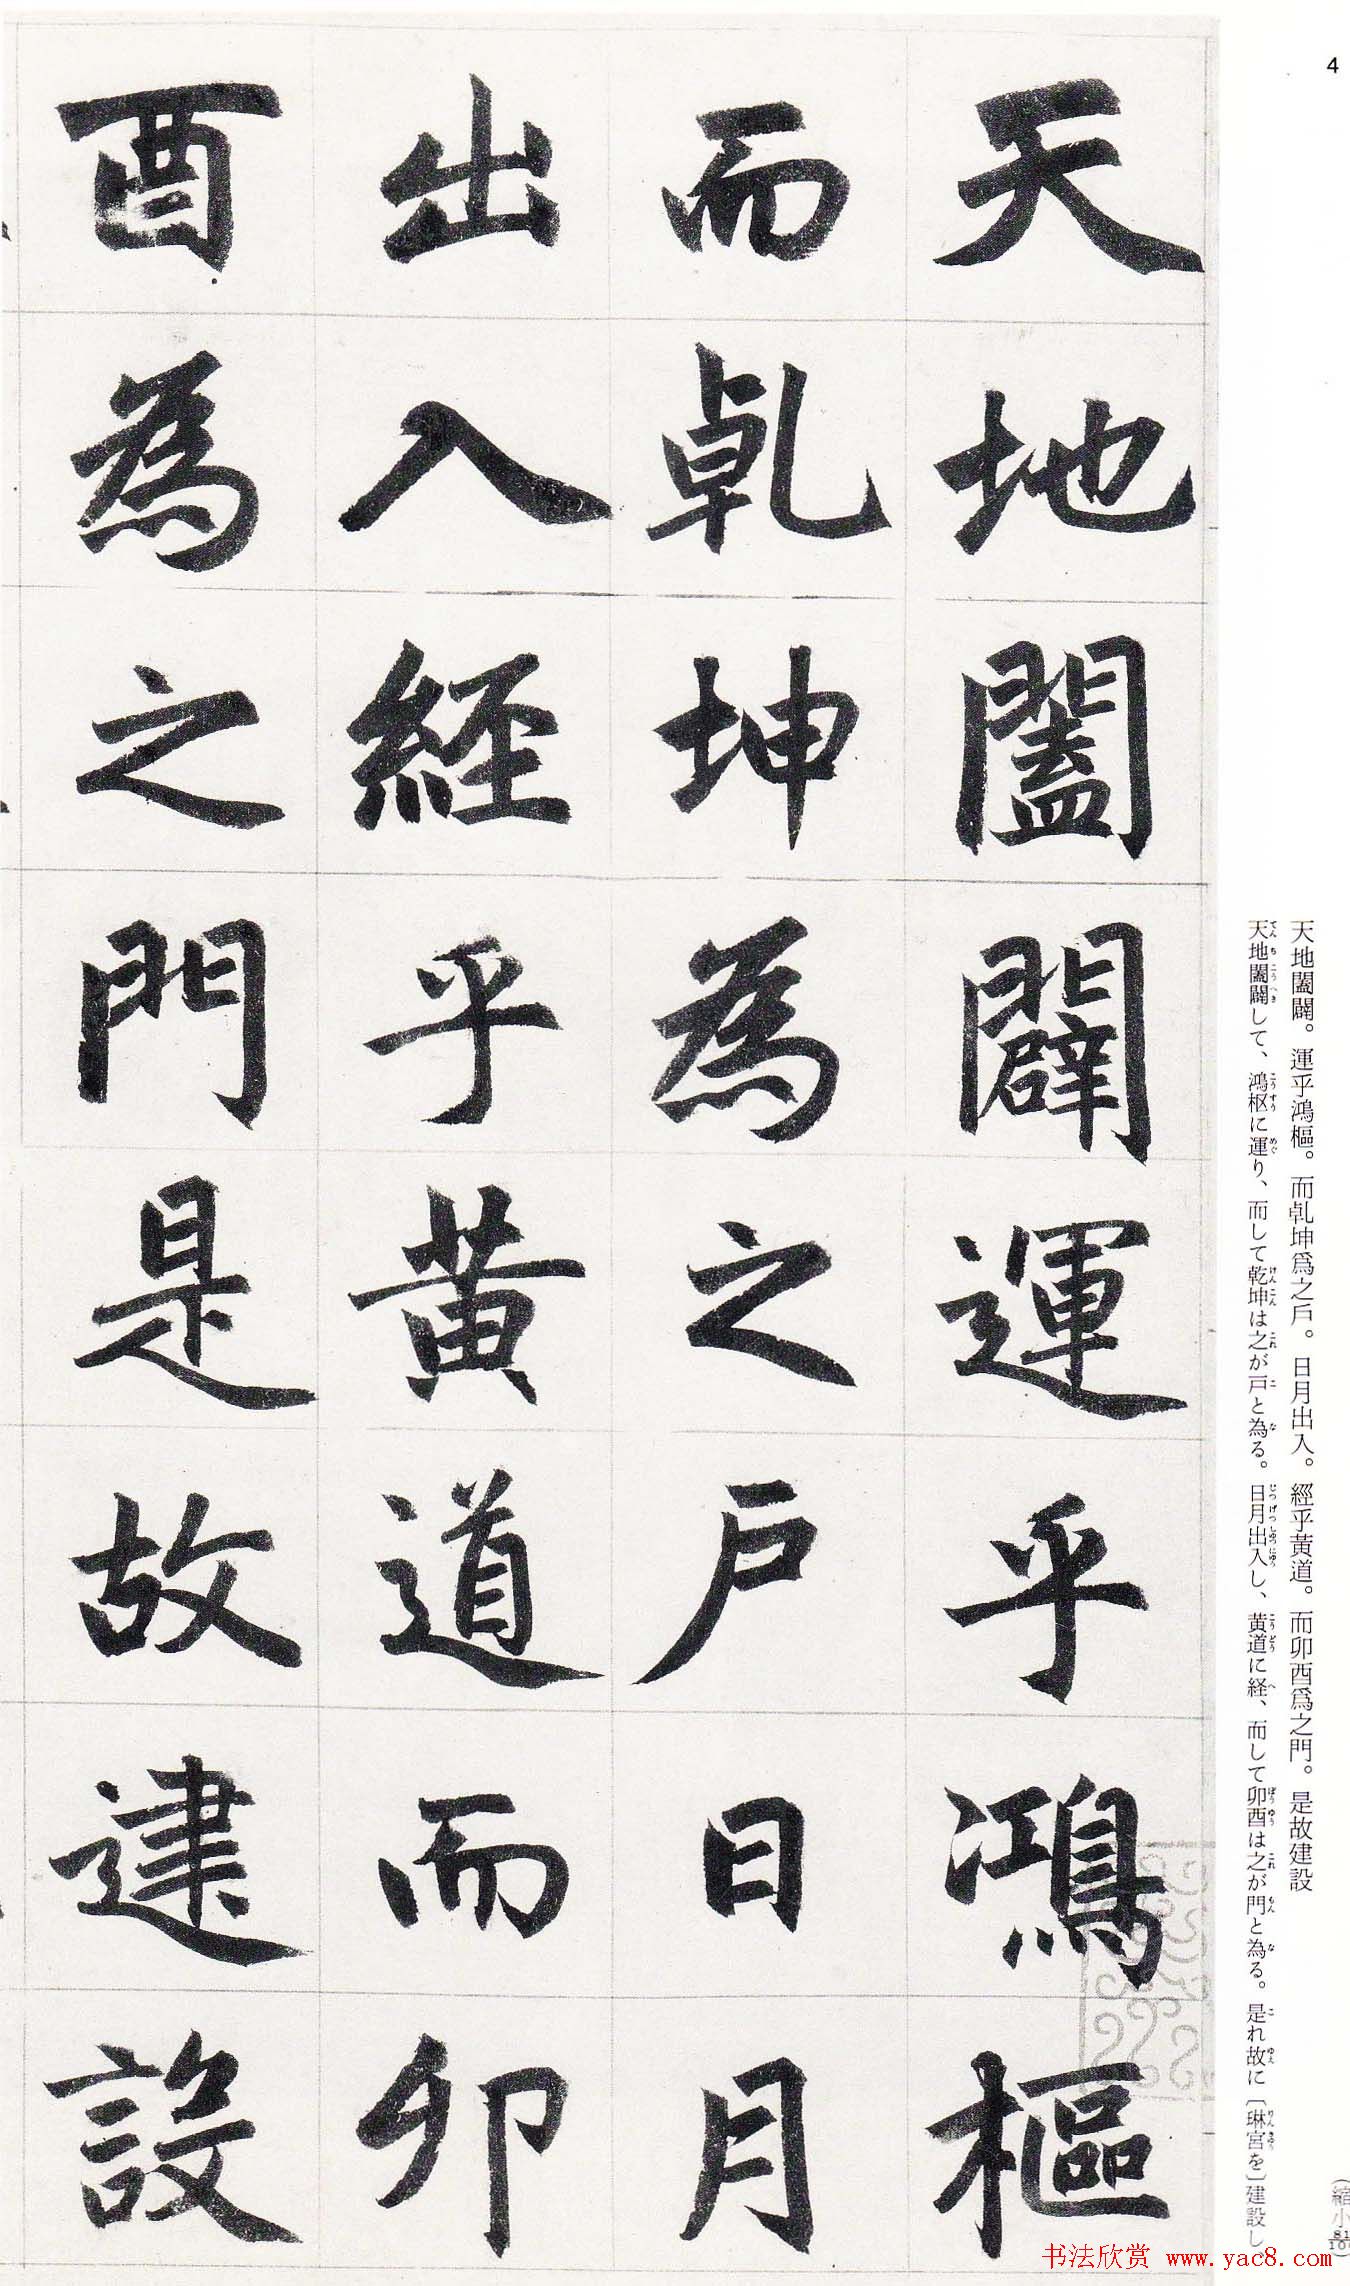 天地闔闢運乎鴻樞
而乹坤為之戶日月
出入經乎黃道而卯
酉為之門是故建設
4
天地闔闢。運乎鴻樞。而乹坤爲之戶。日月出入。經乎黃道。而卯酉爲之門。是故建設
天地闔闢して、鴻枢に運り、而して乾坤は之が戸と為る。日月出入し、黄道に経、而して卯酉は之が門と為る。是れ故に〔琳宮を〕建設し
(縮小
书法欣赏 www.yac8.com